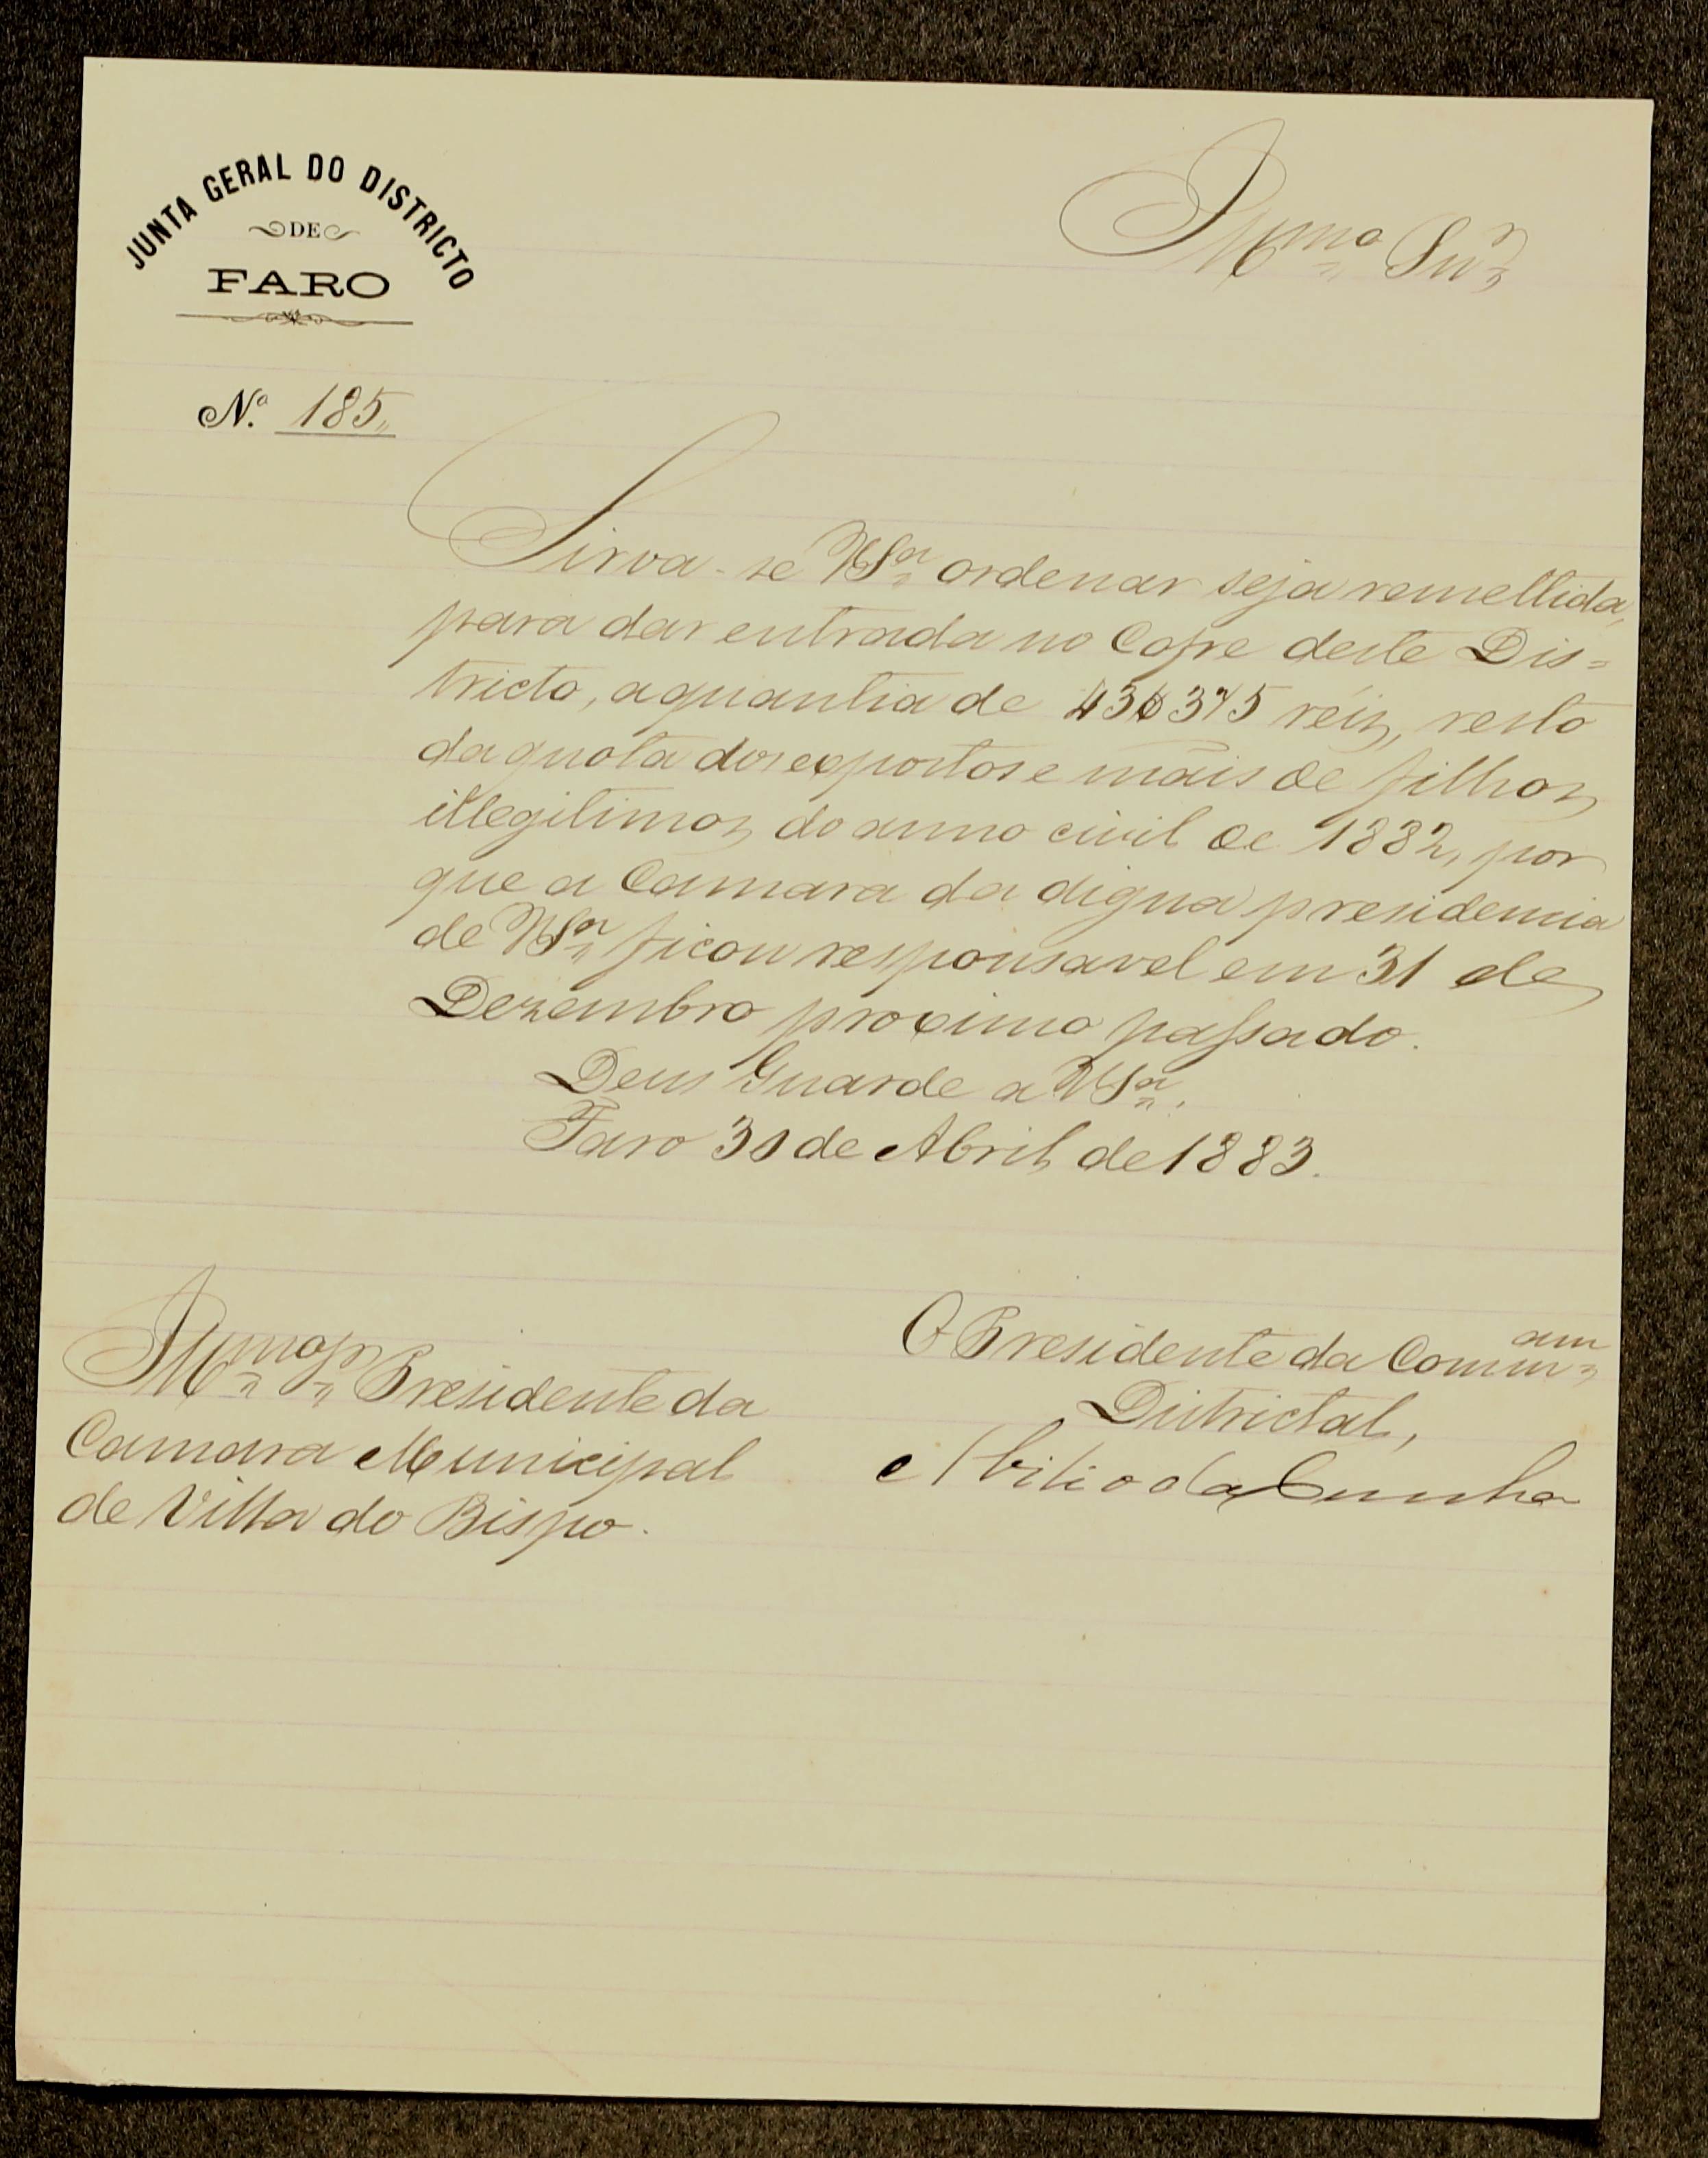 JUNTA GERAL DO DISTRICTO
DE
FARO
Illmo Snr
N.º 185
Sirva-se VSa ordenar seja remettida,
para dar entrada no Cofre deste Dis=
tricto, a quantia de 43$375 réis, resto
da quota dos expostos e mãis de filhos
illegitimos, do anno civil de 1882, por
que a Camara da digna presidencia
de VSa ficou responsavel em 31 de
Dezembro proximo passado.
Deus Guarde a VSa.
Faro 30 de Abril de 1883.
Illmo Snr Presidente da
Camara Municipal
de Villa do Bispo.
O Presidente da Commam
Districtal,
Abilio da Cunha